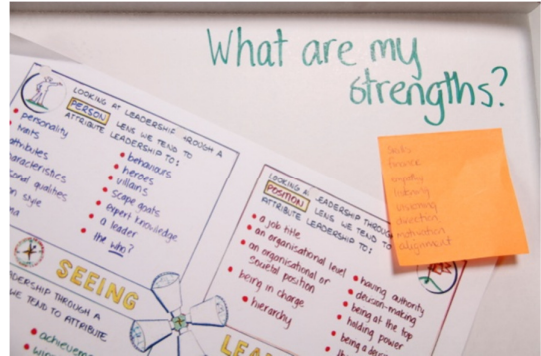 What are my
strengths?
LOOKING AT LEADERSHIP THROUGH A
PERSON LENS WE TEND TO
ATTRIBUTE LEADERSHIP TO:
personality
traits
attributes
characteristics
personal qualities
on style
behaviours
heroes
villains
scape goats
expert knowledge
a leader
the who?
LOOKING A LEADERSHIP THROUGH
POSITION LENS WE TEND TO
ATTRIBUTE LEADERSHIP TO:
a job title
an organisational level
an organisational or
societal position
being in charge
hierarchy
having authority
decision-making
being at the top
holding power
being a
finance
integrity
visioning
direction
motivation
alignment
SEEING
LEADERSHIP THROUGH A
WE TEND TO ATTRIBUTE
LEA